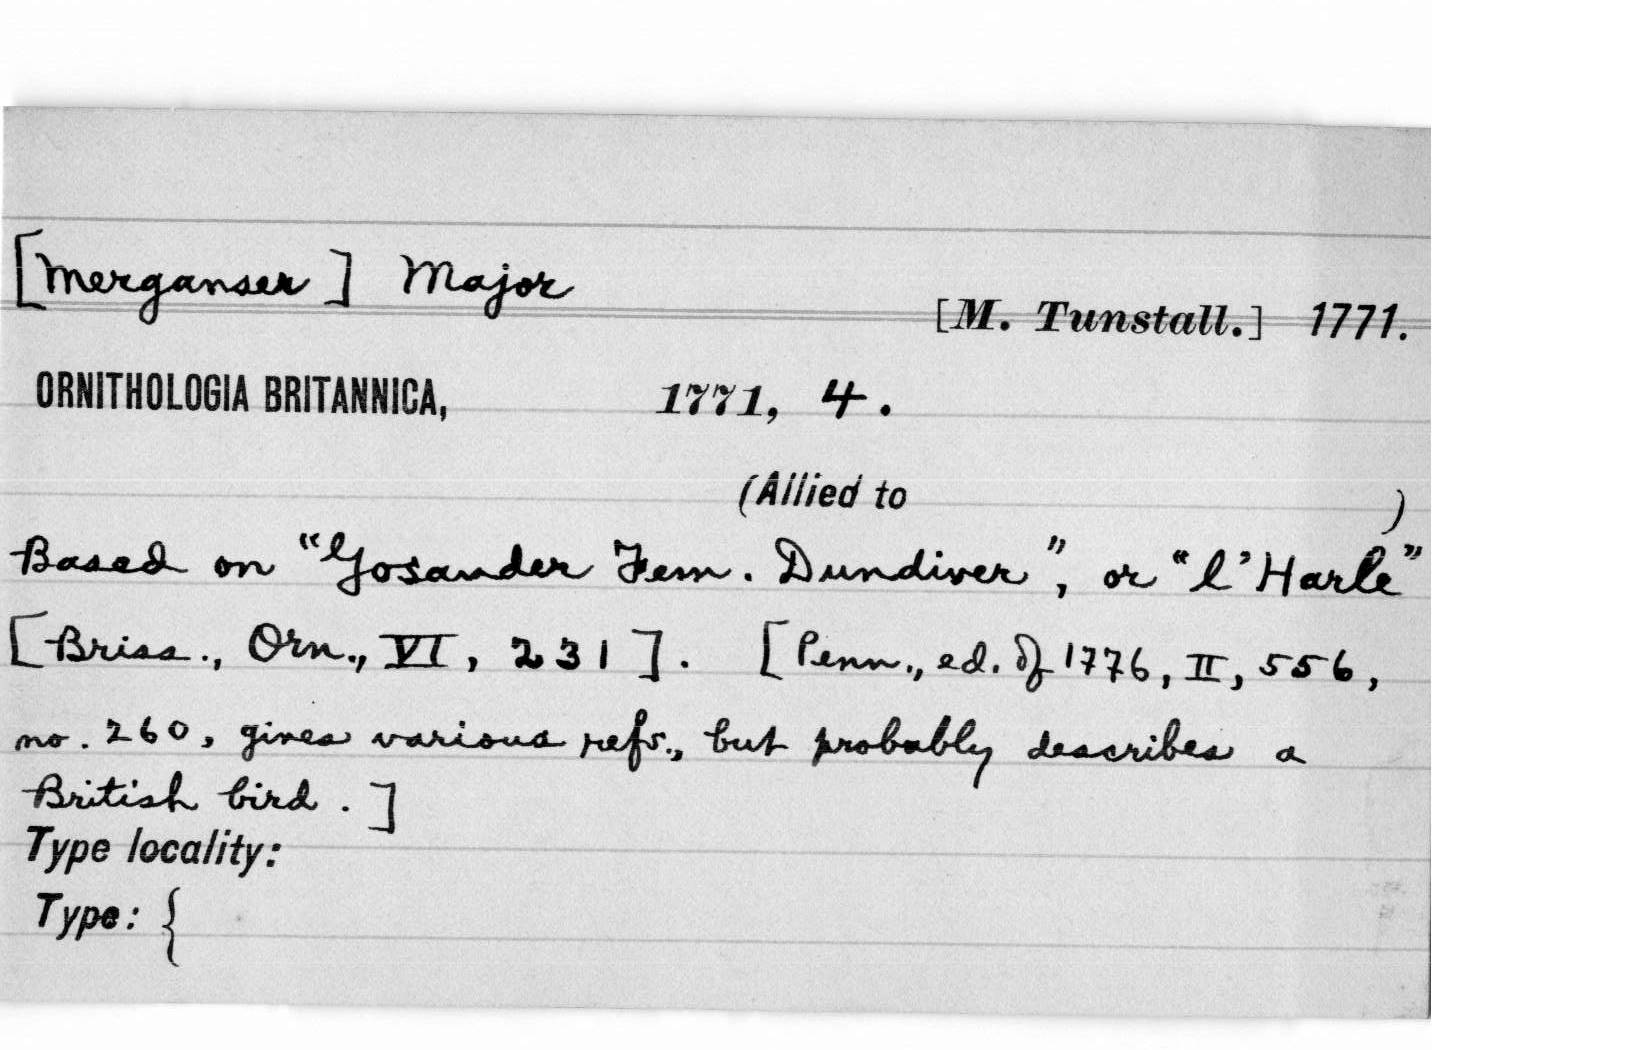 [Merganser] Major
[M. Tunstall.] 1771.
ORNITHOLOGIA BRITANNICA, 1771, 4.
(Allied to )
Based on "Gosander Fem. Dundiver", or "l'Harle"
[Briss., Orn., VI, 231]. [Penn., ed. of 1776, II, 556,
no. 260, gives various refs., but probably describes a
British bird.]
Type locality:
Type: {